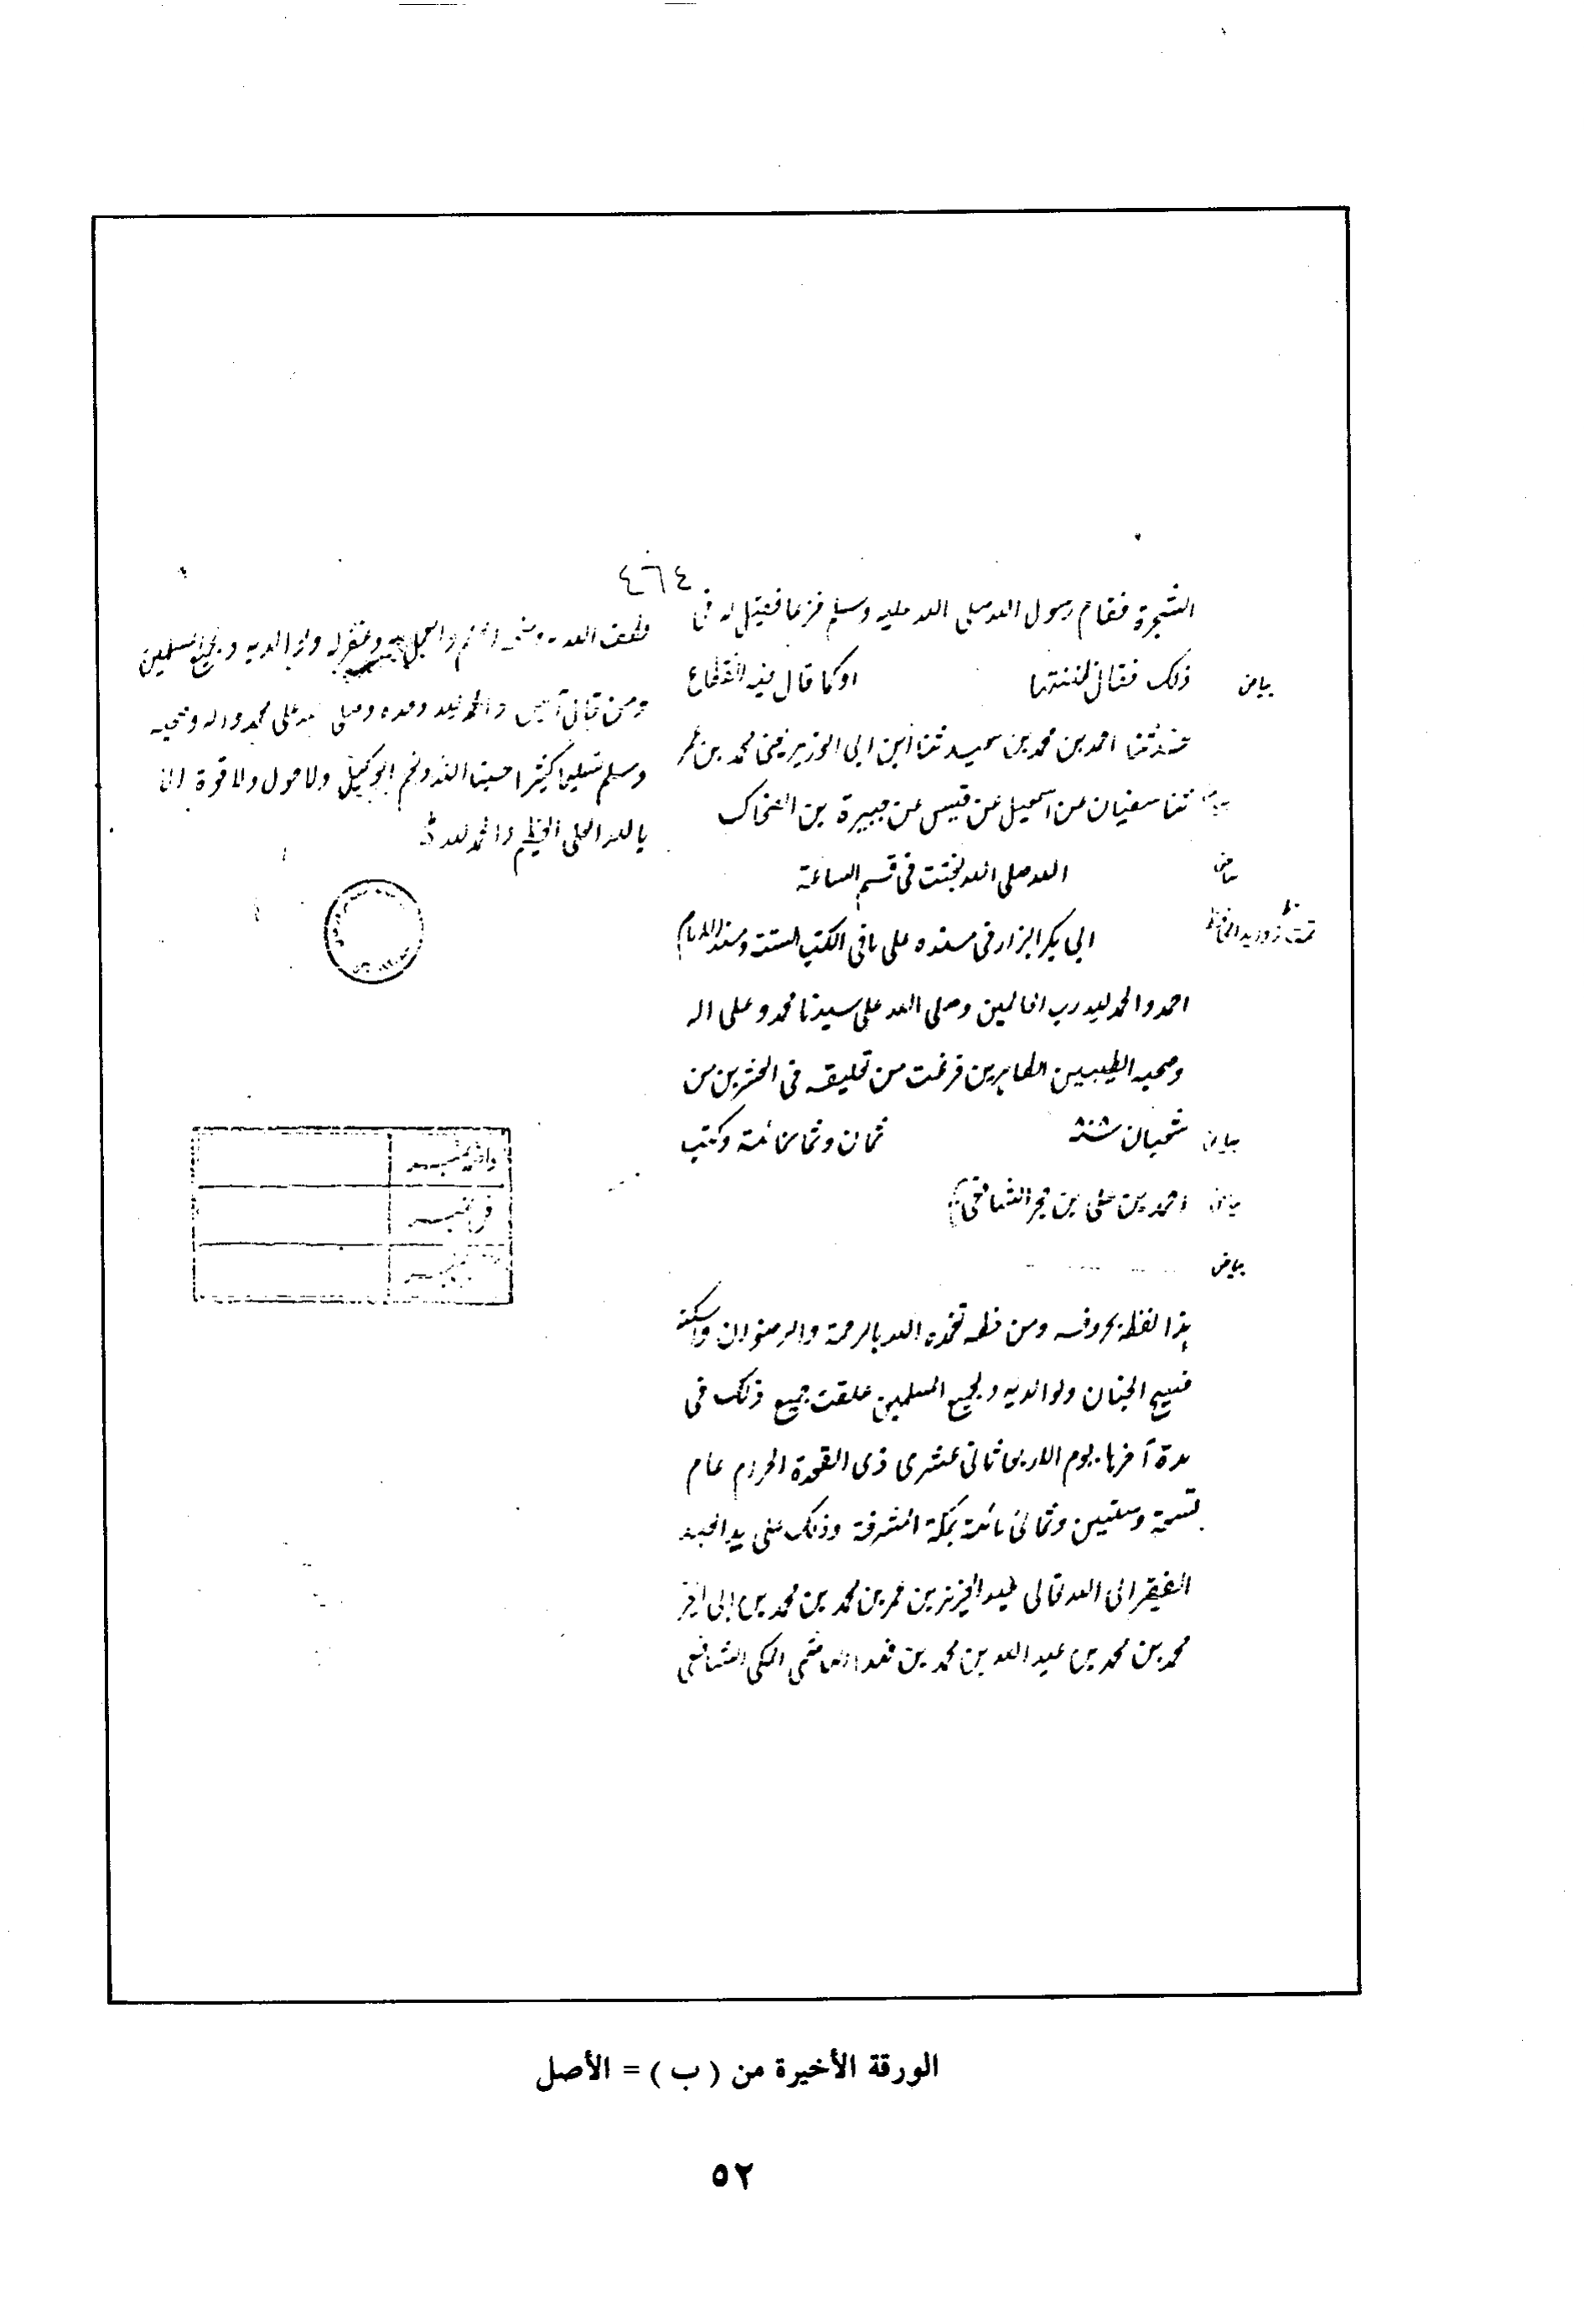 ٤٦٤
الشجرة فقام رسول الله صلى الله عليه وسلم فزعا فقيل له في
ذلك فقال اوكما قال فيه انقطاع
بياض
حدثنا احمد بن محمد بن سعيد ثنا ابن ابي الوزير يعني محمد بن عمر
ثنا سفيان عن اسمعيل عن قيس عن جبيرة بن الضحاك
الله صلى الله بعثت في نسم الساعة
بياض
ابي بكر البزار في مسنده على باقي الكتب الستة ومسند الامام
احمد والحمد لله رب العالمين وصلى الله على سيدنا محمد وعلى اله
وصحبه الطيبين الطاهرين فرغت من تعليقه في العشرين من
شعبان سنة ثمان وثمانمائة وكتب
بياض
احمد بن علي بن حجر الشافعي
بياض
بياض
هذا لفظه بحروفه ومن خطه تغمده الله بالرحمة والرضوان واسكنه
فسيح الجنان ولوالديه ولجميع المسلمين علقت جميع ذلك في
مدة آخرها يوم الاربعا ثاني عشرى ذي القعدة الحرام عام
تسعة وستين وثماني مائة بمكة المشرفة وذلك على يد العبد
الفقير الى الله تعالى عبد العزيز بن عمر بن محمد بن محمد بن ابي الخير
محمد بن محمد بن عبد الله بن محمد بن فهد الهاشمي المكي الشافعي
لطف الله به والعمل وغفر له ولوالديه ولجميع المسلمين
والحمد لله وحده وصلى الله على محمد واله وصحبه
وسلم تسليما كثيرا حسبنا الله ونعم الوكيل ولا حول ولا قوة الا
بالله العلي العظيم والحمد لله
الورقة الأخيرة من ( ب ) = الأصل
٥٢